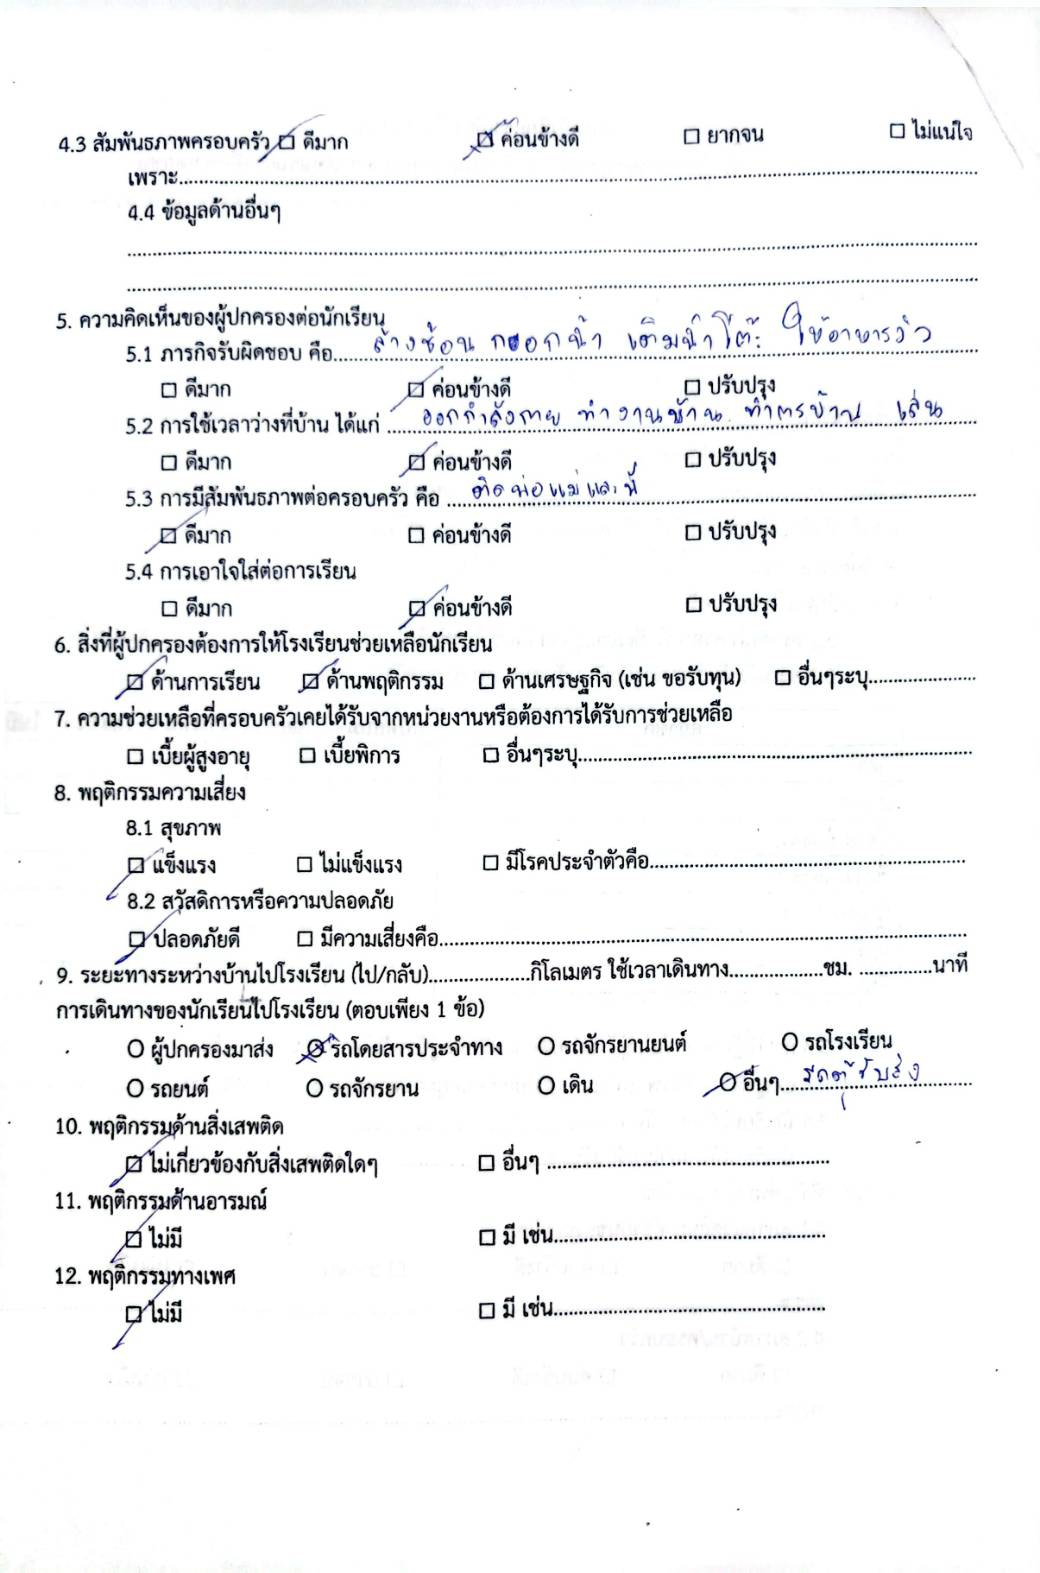 4.3 สัมพันธภาพครอบครัว ☑ ดีมาก ☒ ค่อนข้างดี ☐ ยากจน ☐ ไม่แน่ใจ
เพราะ..........
4.4 ข้อมูลด้านอื่นๆ
5. ความคิดเห็นของผู้ปกครองต่อนักเรียน
5.1 ภารกิจรับผิดชอบ คือ.....ล้างช้อน กรอกน้ำ เติมน้ำโต๊ะ ให้อาหารวัว
☐ ดีมาก ☑ ค่อนข้างดี ☐ ปรับปรุง
5.2 การใช้เวลาว่างที่บ้าน ได้แก่ ..... ออกกำลังกาย ทำงานบ้าน ทำการบ้าน เล่น
☐ ดีมาก ☑ ค่อนข้างดี ☐ ปรับปรุง
5.3 การมีสัมพันธภาพต่อครอบครัว คือ ..... ติดพ่อแม่และพี่
☑ ดีมาก ☐ ค่อนข้างดี ☐ ปรับปรุง
5.4 การเอาใจใส่ต่อการเรียน
☐ ดีมาก ☑ ค่อนข้างดี ☐ ปรับปรุง
6. สิ่งที่ผู้ปกครองต้องการให้โรงเรียนช่วยเหลือนักเรียน
☑ ด้านการเรียน ☑ ด้านพฤติกรรม ☐ ด้านเศรษฐกิจ (เช่น ขอรับทุน) ☐ อื่นๆระบุ..........
7. ความช่วยเหลือที่ครอบครัวเคยได้รับจากหน่วยงานหรือต้องการได้รับการช่วยเหลือ
☐ เบี้ยผู้สูงอายุ ☐ เบี้ยพิการ ☐ อื่นๆระบุ..........
8. พฤติกรรมความเสี่ยง
8.1 สุขภาพ
☑ แข็งแรง ☐ ไม่แข็งแรง ☐ มีโรคประจำตัวคือ..........
8.2 สวัสดิการหรือความปลอดภัย
☑ ปลอดภัยดี ☐ มีความเสี่ยงคือ..........
9. ระยะทางระหว่างบ้านไปโรงเรียน (ไป/กลับ)..........กิโลเมตร ใช้เวลาเดินทาง..........ชม. ..........นาที
การเดินทางของนักเรียนไปโรงเรียน (ตอบเพียง 1 ข้อ)
○ ผู้ปกครองมาส่ง ⊗ รถโดยสารประจำทาง ○ รถจักรยานยนต์ ○ รถโรงเรียน
○ รถยนต์ ○ รถจักรยาน ○ เดิน ☑ อื่นๆ.....รถตู้รับส่ง
10. พฤติกรรมด้านสิ่งเสพติด
☑ ไม่เกี่ยวข้องกับสิ่งเสพติดใดๆ ☐ อื่นๆ ..........
11. พฤติกรรมด้านอารมณ์
☑ ไม่มี ☐ มี เช่น..........
12. พฤติกรรมทางเพศ
☑ ไม่มี ☐ มี เช่น..........